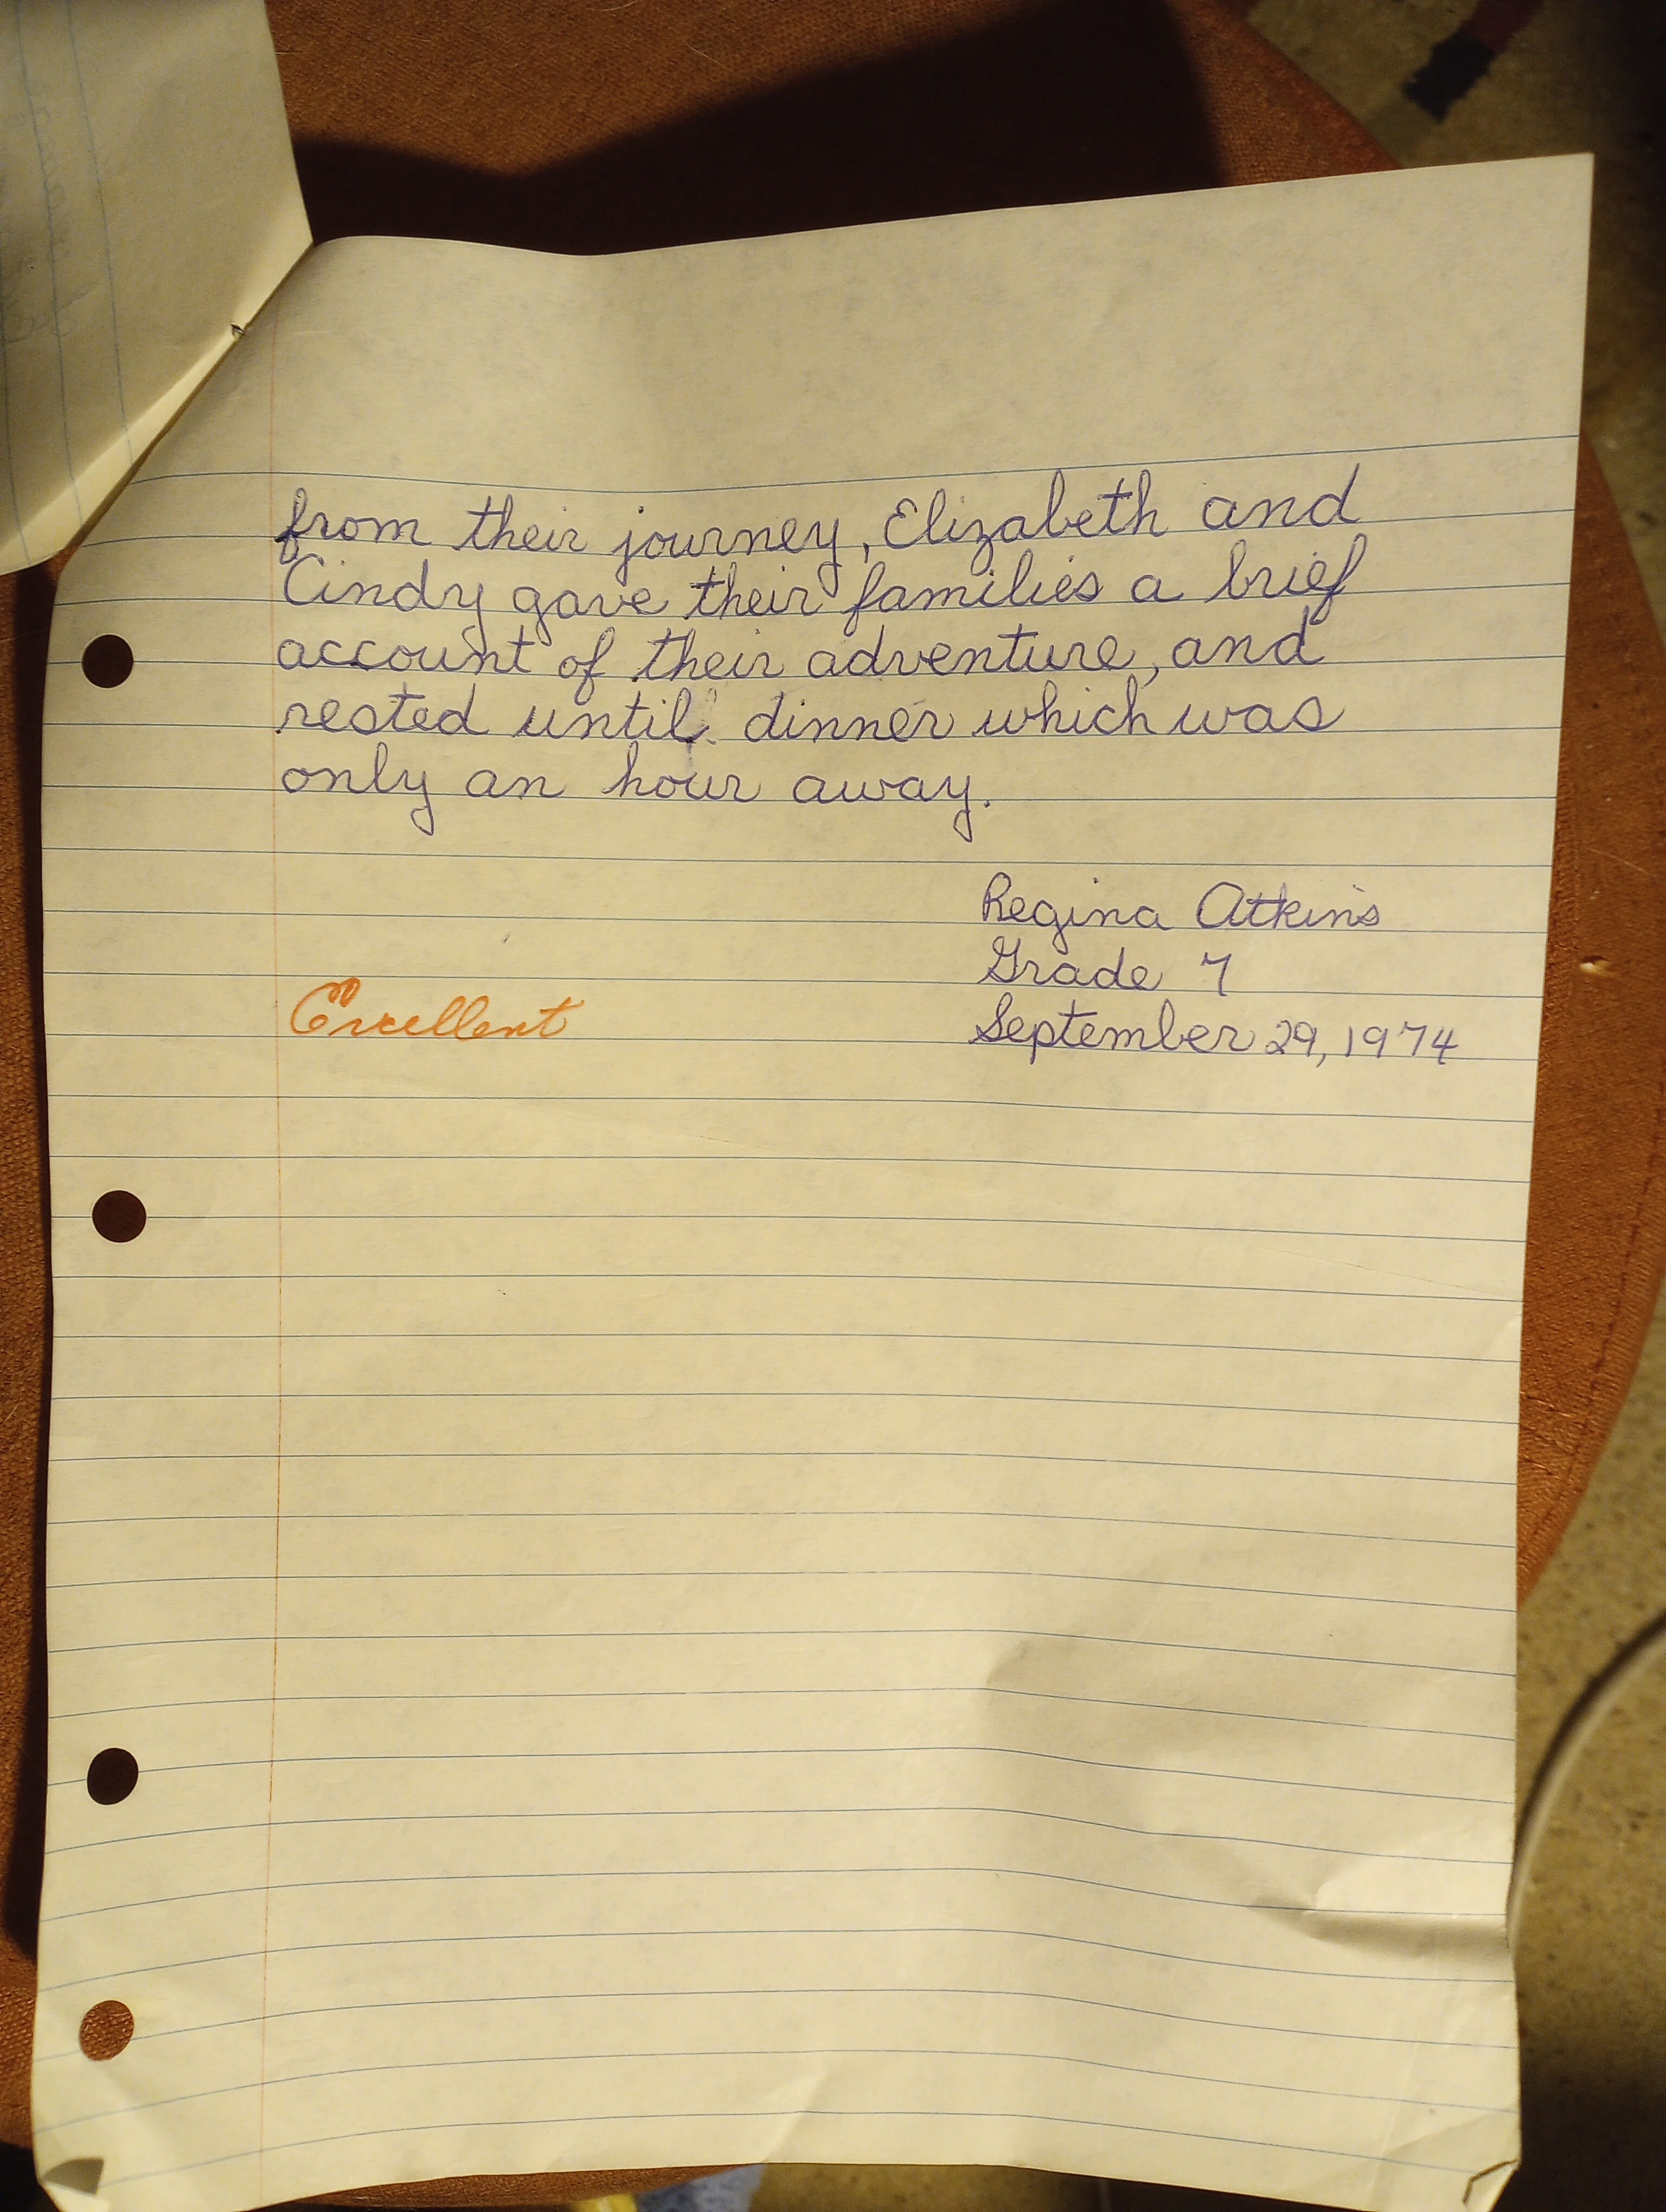 from their journey, Elizabeth and
Cindy gave their families a brief
account of their adventure, and
rested until dinner which was
only an hour away.
Regina Atkins
Grade 7
Excellent
September 29, 1974